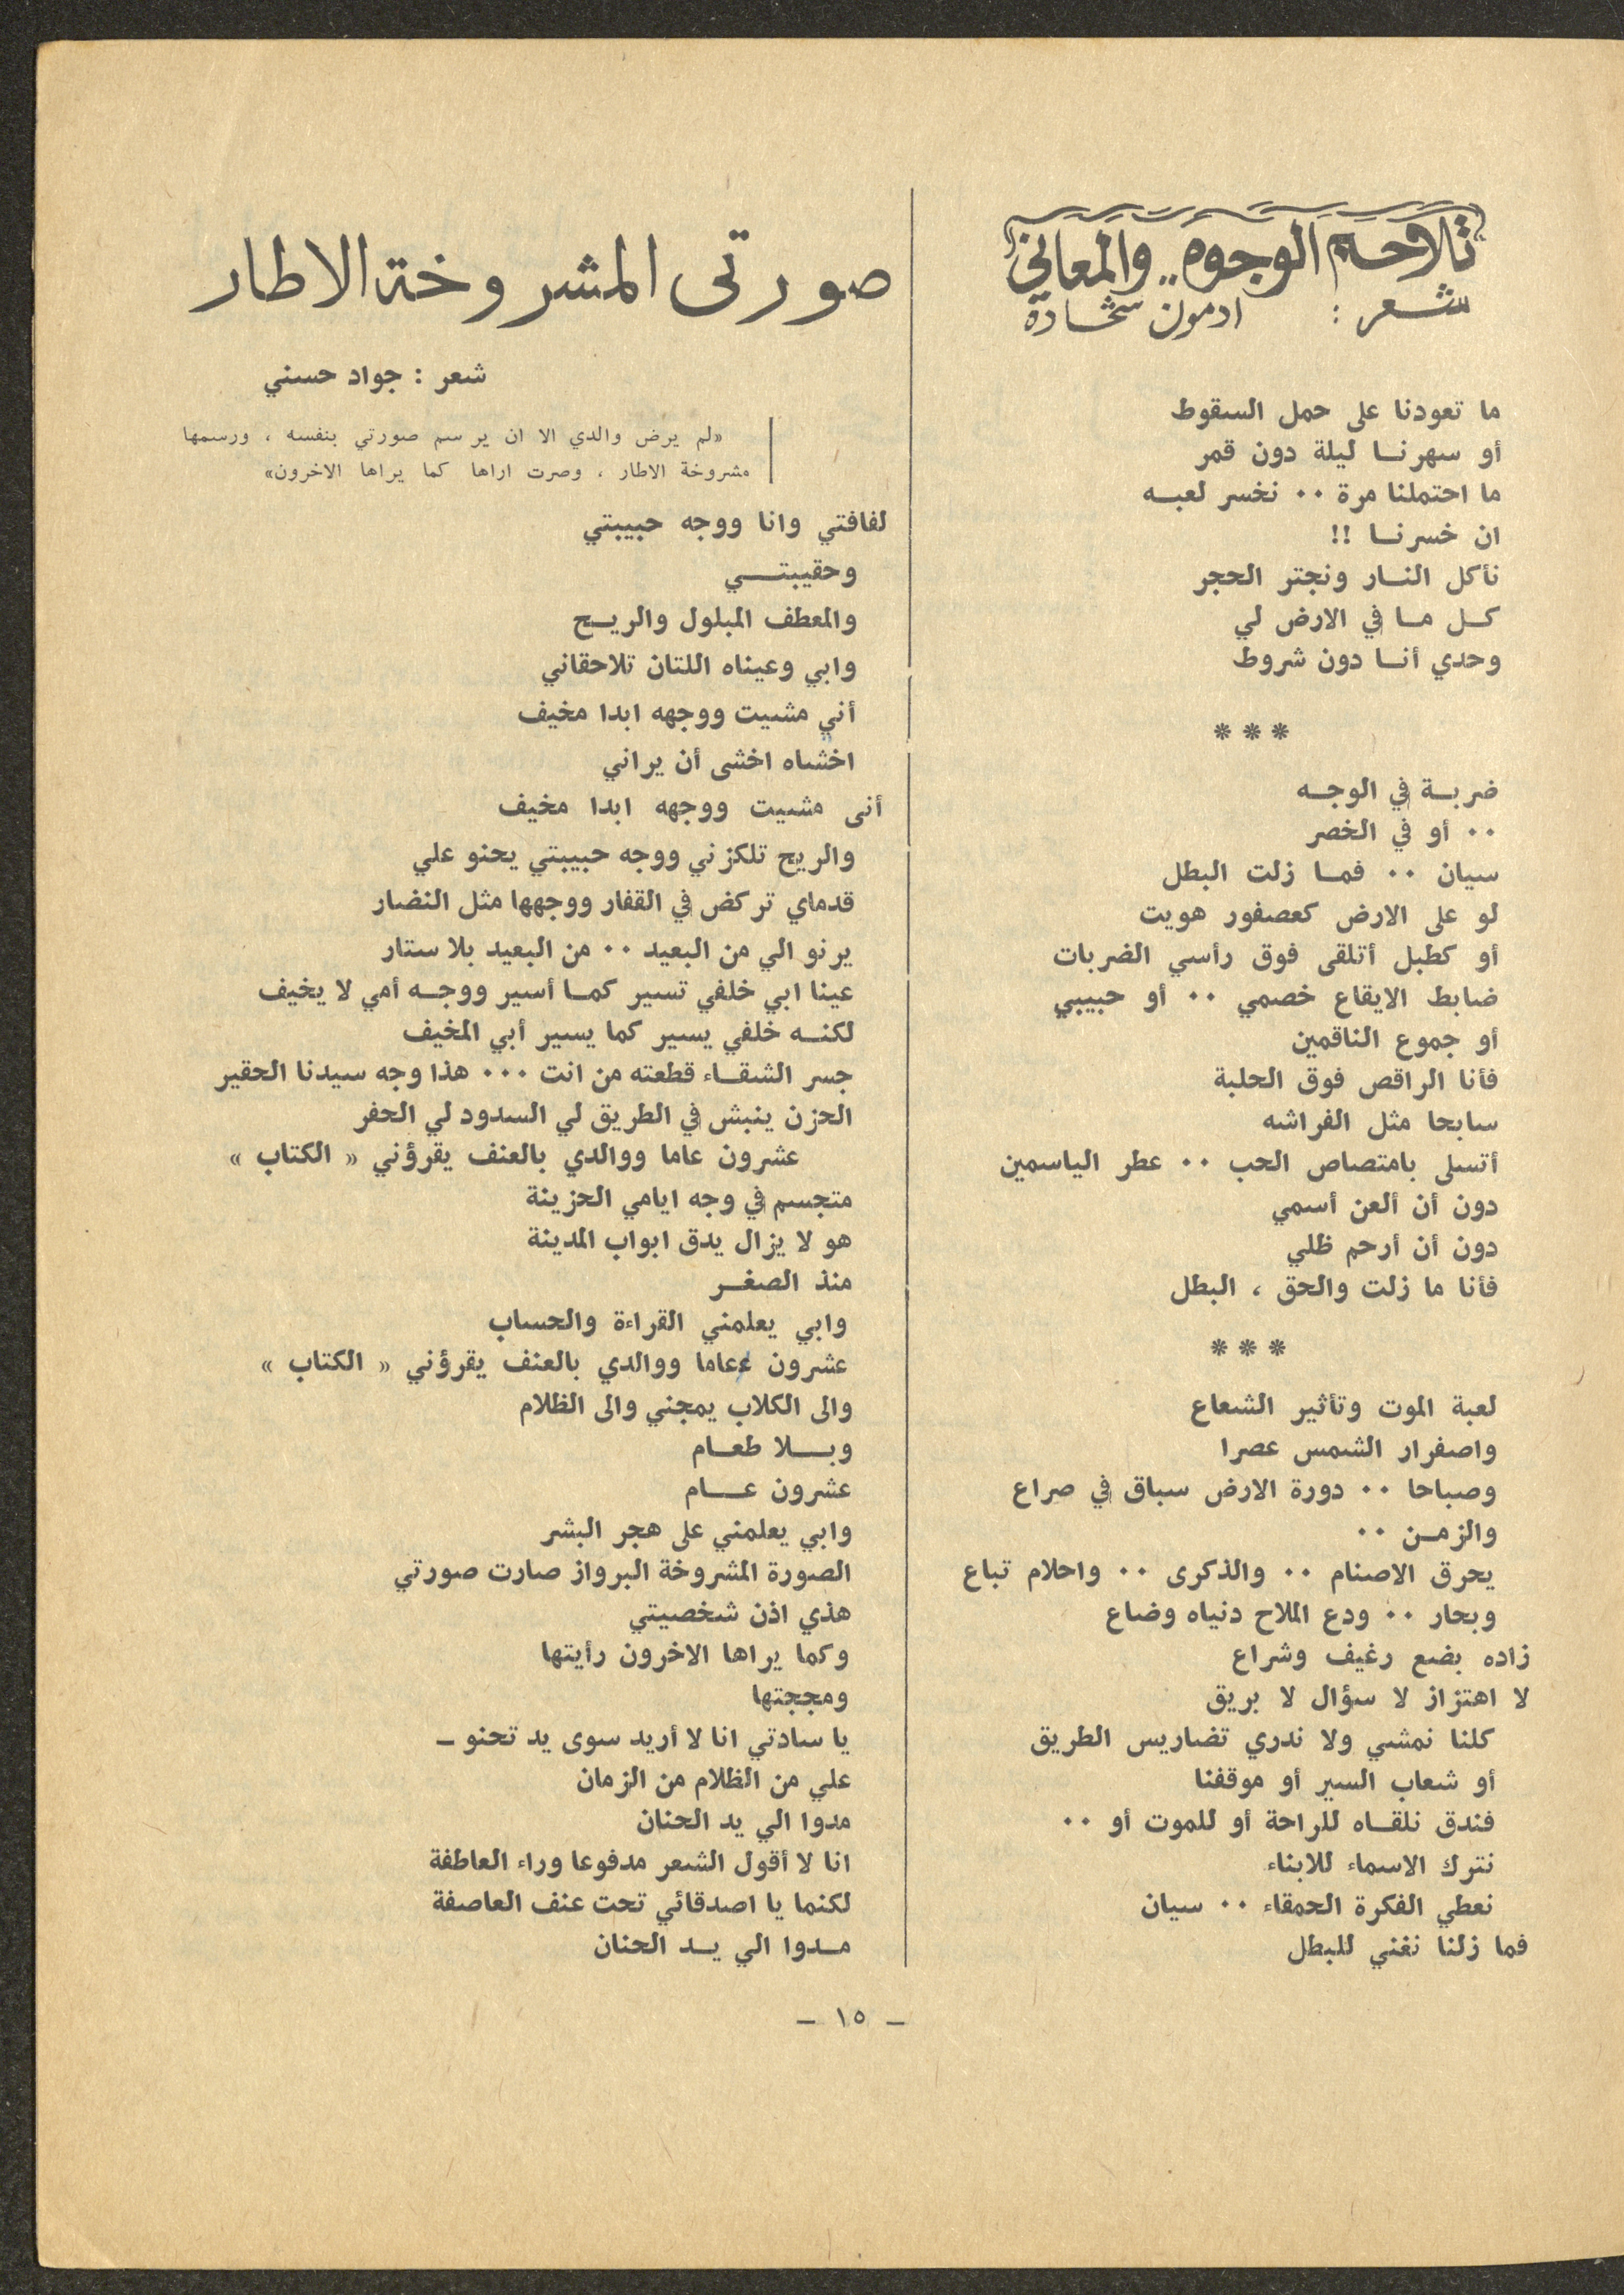 تلاحم الوجوه .. والمعاني
شعر : ادمون شحادة
ما تعودنا على حمل السقوط
أو سهرنا ليلة دون قمر
ما احتملنا مرة ٠٠ نخسر لعبه
ان خسرنا !!
نأكل النار ونجتر الحجر
كل ما في الارض لي
وحدي أنا دون شروط
***
ضربة في الوجه
٠٠ أو في الخصر
سيان ٠٠ فما زلت البطل
لو على الارض كعصفور هويت
أو كطبل أتلقى فوق رأسي الضربات
ضابط الايقاع خصمي ٠٠ أو حبيبي
أو جموع الناقمين
فأنا الراقص فوق الحلبة
سابحا مثل الفراشه
أتسلى بامتصاص الحب ٠٠ عطر الياسمين
دون أن ألعن أسمي
دون أن أرحم ظلي
فأنا ما زلت والحق ، البطل
***
لعبة الموت وتأثير الشعاع
واصفرار الشمس عصرا
وصباحا ٠٠ دورة الارض سباق في صراع
والزمن ٠٠
يحرق الاصنام ٠٠ والذكرى ٠٠ واحلام تباع
وبحار ٠٠ ودع الملاح دنياه وضاع
زاده بضع رغيف وشراع
لا اهتزاز لا سؤال لا بريق
كلنا نمشي ولا ندري تضاريس الطريق
أو شعاب السير أو موقفنا
فندق نلقاه للراحة أو للموت أو ٠٠
نترك الاسماء للابناء
نعطي الفكرة الحمقاء ٠٠ سيان
فما زلنا نغني للبطل
صورتى المشروخة الاطار
شعر : جواد حسني
«لم يرض والدي الا ان يرسم صورتي بنفسه ، ورسمها
مشروخة الاطار ، وصرت اراها كما يراها الاخرون»
لفافتي وانا ووجه حبيبتي
وحقيبتي
والمعطف المبلول والريح
وابي وعيناه اللتان تلاحقاني
أني مشيت ووجهه ابدا مخيف
اخشاه اخشى أن يراني
أنى مشيت ووجهه ابدا مخيف
والريح تلكزني ووجه حبيبتي يحنو علي
قدماي تركض في القفار ووجهها مثل النضار
يرنو الي من البعيد ٠٠ من البعيد بلا ستار
عينا ابي خلفي تسير كما أسير ووجه أمي لا يخيف
لكنه خلفي يسير كما يسير أبي المخيف
جسر الشقاء قطعته من انت ٠٠٠ هذا وجه سيدنا الحقير
الحزن ينبش في الطريق لي السدود لي الحفر
عشرون عاما ووالدي بالعنف يقرؤني « الكتاب »
متجسم في وجه ايامي الحزينة
هو لا يزال يدق ابواب المدينة
منذ الصغر
وابي يعلمني القراءة والحساب
عشرون عاما ووالدي بالعنف يقرؤني « الكتاب »
والى الكلاب يمجني والى الظلام
وبلا طعام
عشرون عام
وابي يعلمني على هجر البشر
الصورة المشروخة البرواز صارت صورتي
هذي اذن شخصيتي
وكما يراها الاخرون رأيتها
ومججتها
يا سادتي انا لا أريد سوى يد تحنو ـ
علي من الظلام من الزمان
مدوا الي يد الحنان
انا لا أقول الشعر مدفوعا وراء العاطفة
لكنما يا اصدقائي تحت عنف العاصفة
مدوا الي يد الحنان
ـ ١٥ ـ